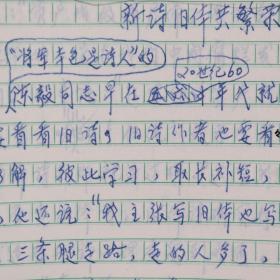 新诗旧体共繁荣
“将军本色是诗人”的
20世纪60
陈毅同志早在年代就
要看看旧诗，旧诗作者也要看
了解，彼此学习，取长补短，
，他还说：“我主张写旧体也写
三条腿走路，走的人多了，